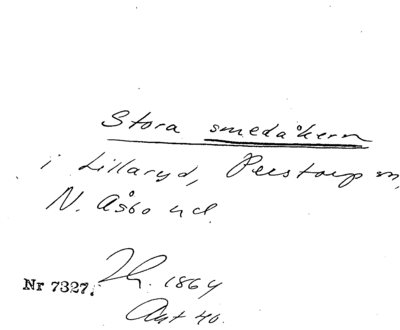 Stora smedåkern
i Lillaryd, Perstorp sn,
N. Åsbo hd.
Nr 7327. Th. 1864
Akt 40.